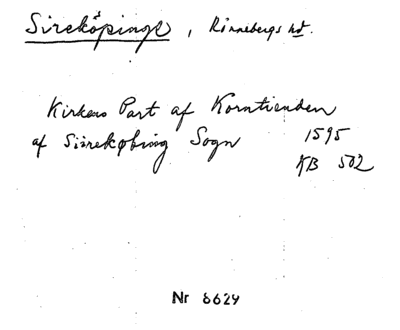 Sireköpinge, Rönnebergs hd.
Kirkens Part af Korntienden
af Siirekøbing Sogn 1595
KB 502
Nr 8629